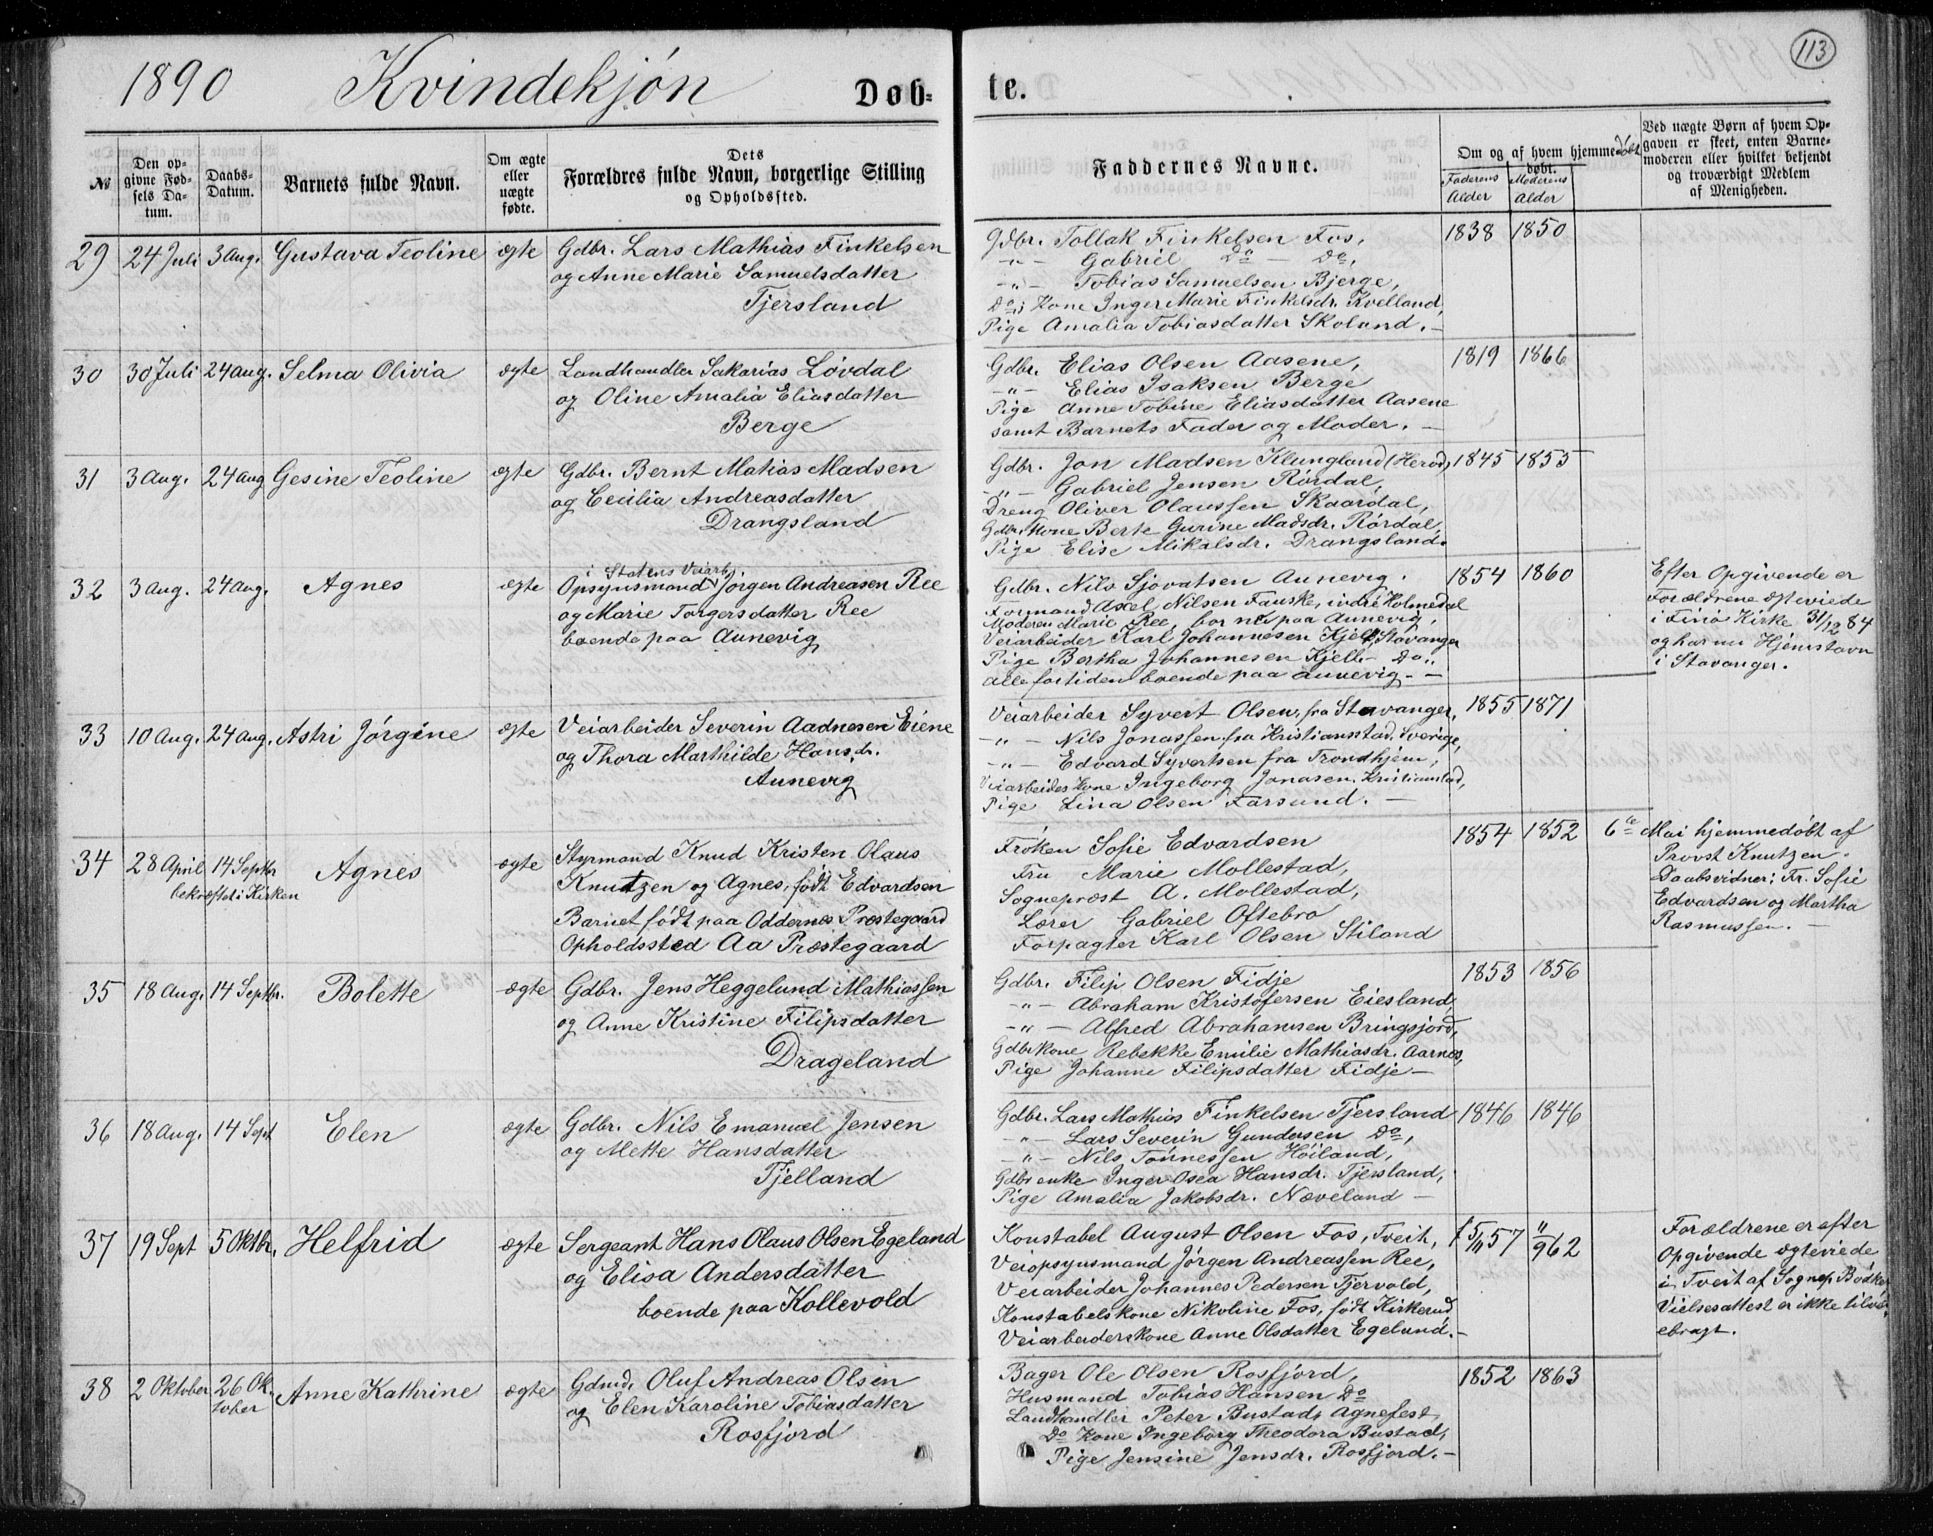 1890 Kvindekjøn Døb-
te.
113
№
Den op-
givne Fød-
sels Da-
tum.
Daabs-
Datum.
Barnets fulde Navn.
Om ægte
eller
uægte
fødte.
Dets
Forældres fulde Navn, borgerlige Stilling
og Opholdssted.
Faddernes Navne.
Om og af hvem hjemmedøbt
døbt.
Faderens
Alder
Moderens
Alder
Ved uægte Børn af hvem Op-
gaven er skeet, enten Barne-
moderen eller hvilket bekjendt
og troværdigt Medlem
af Menigheden.
29 24 Juli 3 Aug. Gustava Teoline ægte
Gdbr. Lars Mathias Finkelsen
og Anne Marie Samuelsdatter
Tjersland
Gdbr. Tollak Finkelsen Fos,
-"- Gabriel Do - Do,
-"- Tobias Samuelsen Bjerge,
Do's Kone Inger Marie Finkelsdr. Kvelland,
Pige Amalia Tobiasdatter Skoland. -
1838 1850
30 30 Juli 24 Aug. Selma Olivia ægte
Landhandler Sakarias Løvdal
og Oline Amalia Eliasdatter
Berge
Gdbr. Elias Olsen Aasene,
-"- Elias Isaksen Berge
Pige Anne Tobine Eliasdatter Aasene
samt Barnets Fader og Moder. -
1819 1866
31 3 Aug. 24 Aug Gesine Teoline ægte
Gdbr. Bernt Matias Madsen
og Cecilia Andreasdatter
Drangsland
Gdbr. Jon Madsen Klungland (Herod)
-"- Gabriel Jensen Rørdal,
Dreng Oliver Olaussen Skaardal,
Gdbr. Kone Berte Gurine Madsdr. Rørdal,
Pige Elise Mikalsdr. Drangsland.
1845 1855
32 3 Aug. 24 Aug. Agnes ægte
i Statens Veiarb.
Opsynsmand Jørgen Andreasen Ree
og Marie Torgersdatter Ree
boende paa Aunevig
Gdbr. Nils Sjovatsen Aunevig.
Formand Axel Nilsen Fauske, indre Holmedal
Moderen Marie Ree, bor nu paa Aunevig,
Veiarbeider Karl Johannesen Kjell, Stavanger
Pige Bertha Johannesen Kjell - Do,
alle fortiden boende paa Aunevig. -
1854 1860
Efter Opgivende er
Forældrene ægteviede
i Finø Kirke 31/12 84
og har nu Hjemstavn
i Stavanger.
33 10 Aug. 24 Aug. Astri Jørgine ægte
Veiarbeider Severin Aadnesen Eiene
og Thora Marthilde Hansdr.
Aunevig
Veiarbeider Syvert Olsen, fra Stavanger,
-"- Nils Jonassen fra Kristiansstad. Sverige,
-"- Edvard Syvertsen fra Trondhjem,
Veiarbeides Kone Ingeborg Jonasen. Kristianstad,
Pige Lina Olsen Farsund. -
1855 1871
34 28 April 14 Septbr Agnes ægte
bekræftet i Kirken
Styrmand Knud Kristen Olaus
Knutzen og Agnes, født Edvardsen
Barnet født paa Oddernes Præstegaard
Opholdssted Aa Præstegaard
Frøken Sofie Edvardsen
Fru Marie Mollestad,
Sognepræst A. Mollestad,
Lærer Gabriel Oftebro
Forpagter Karl Olsen Stiland
1854 1852 6te Mai hjemmedøbt af
Provst Knutzen.
Daabsvidner: Fr. Sofie
Edvardsen og Martha
Rasmussen. -
35 18 Aug. 14 Septbr. Bolette ægte
Gdbr. Jens Heggelund Mathiassen
og Anne Kristine Filipsdatter
Drageland
Gdbr. Filip Olsen Fidje
-"- Abraham Kristofersen Eiesland,
-"- Alfred Abrahamsen Bringsjord,
Gdbrkone Rebekke Emilie Mathiasdr. Aarnes,
Pige Johanne Filipsdatter Fidje -
1853 1856
36 18 Aug. 14 Sept Elen ægte
Gdbr. Nils Emanuel Jensen
og Mette Hansdatter
Fjelland
Gdbr. Lars Mathias Finkelsen Tjersland
-"- Lars Severin Gundersen Do,
-"- Nils Tønnessen Høiland,
Gdbrenke Inger Osea Hansdr. Tjersland,
Pige Amalia Jakobsdr. Næveland -
1846 1846
37 19 Sept 5 Oktbr. Helfrid ægte
Sergeant Hans Olaus Olsen Egeland
og Elisa Andersdatter
boende paa Kollevold
Konstabel August Olsen Fos, Tveit,
Veiopsynsmand Jørgen Andreassen Ree,
Veiarbeider Johannes Pedersen Tjervold,
Konstabelskone Nikoline Fos, født Kirkerud
Veiarbeiderskone Anne Olsdatter Egeland. -
f 5/11 57 11/9 62
Forældrene er efter
Opgivende ægteviede
i Tveit af Sognep Bødker
Vielsesattest er ikke tilvei-
ebragt.
38 2 Oktober 26 Ok- Anne Kathrine ægte
tober
Gdmd. Oluf Andreas Olsen
og Elen Karoline Tobiasdatter
Rosfjord
Bager Ole Olsen Rosfjord,
Husmand Tobias Hansen Do
Landhandler Peter Bustad, Agnefest
Do Kone Ingeborg Theodora Bustad,
Pige Jensine Jensdr. Rosfjord. -
1852 1863